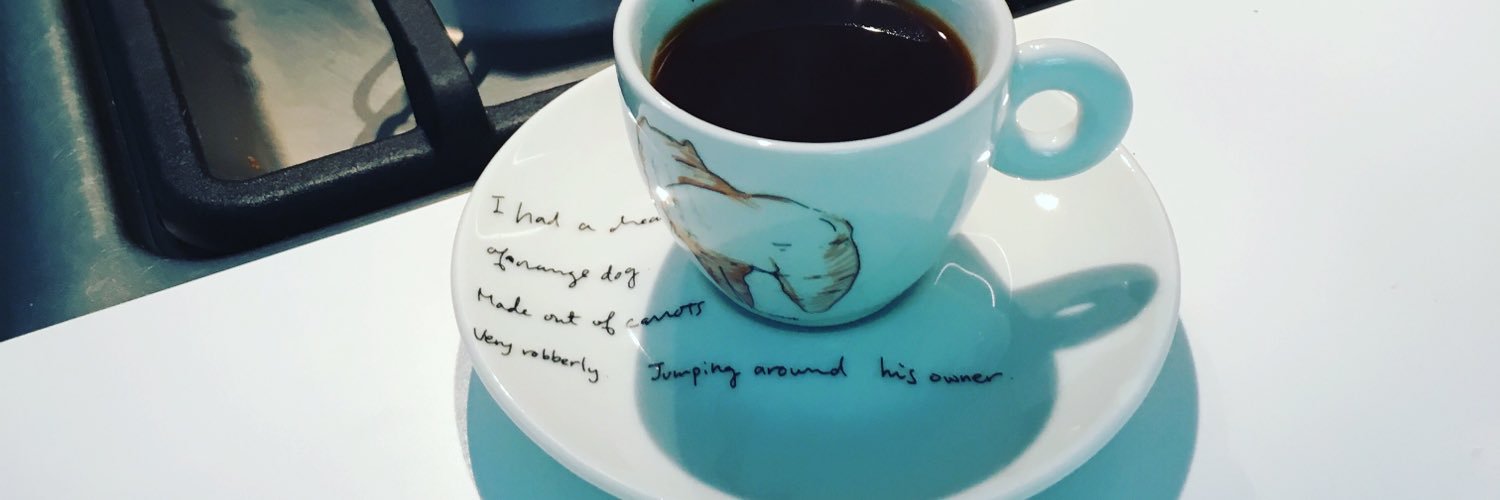 I had a
of orange dog
Made out of carrots
Very robberly. Jumping around his owner.